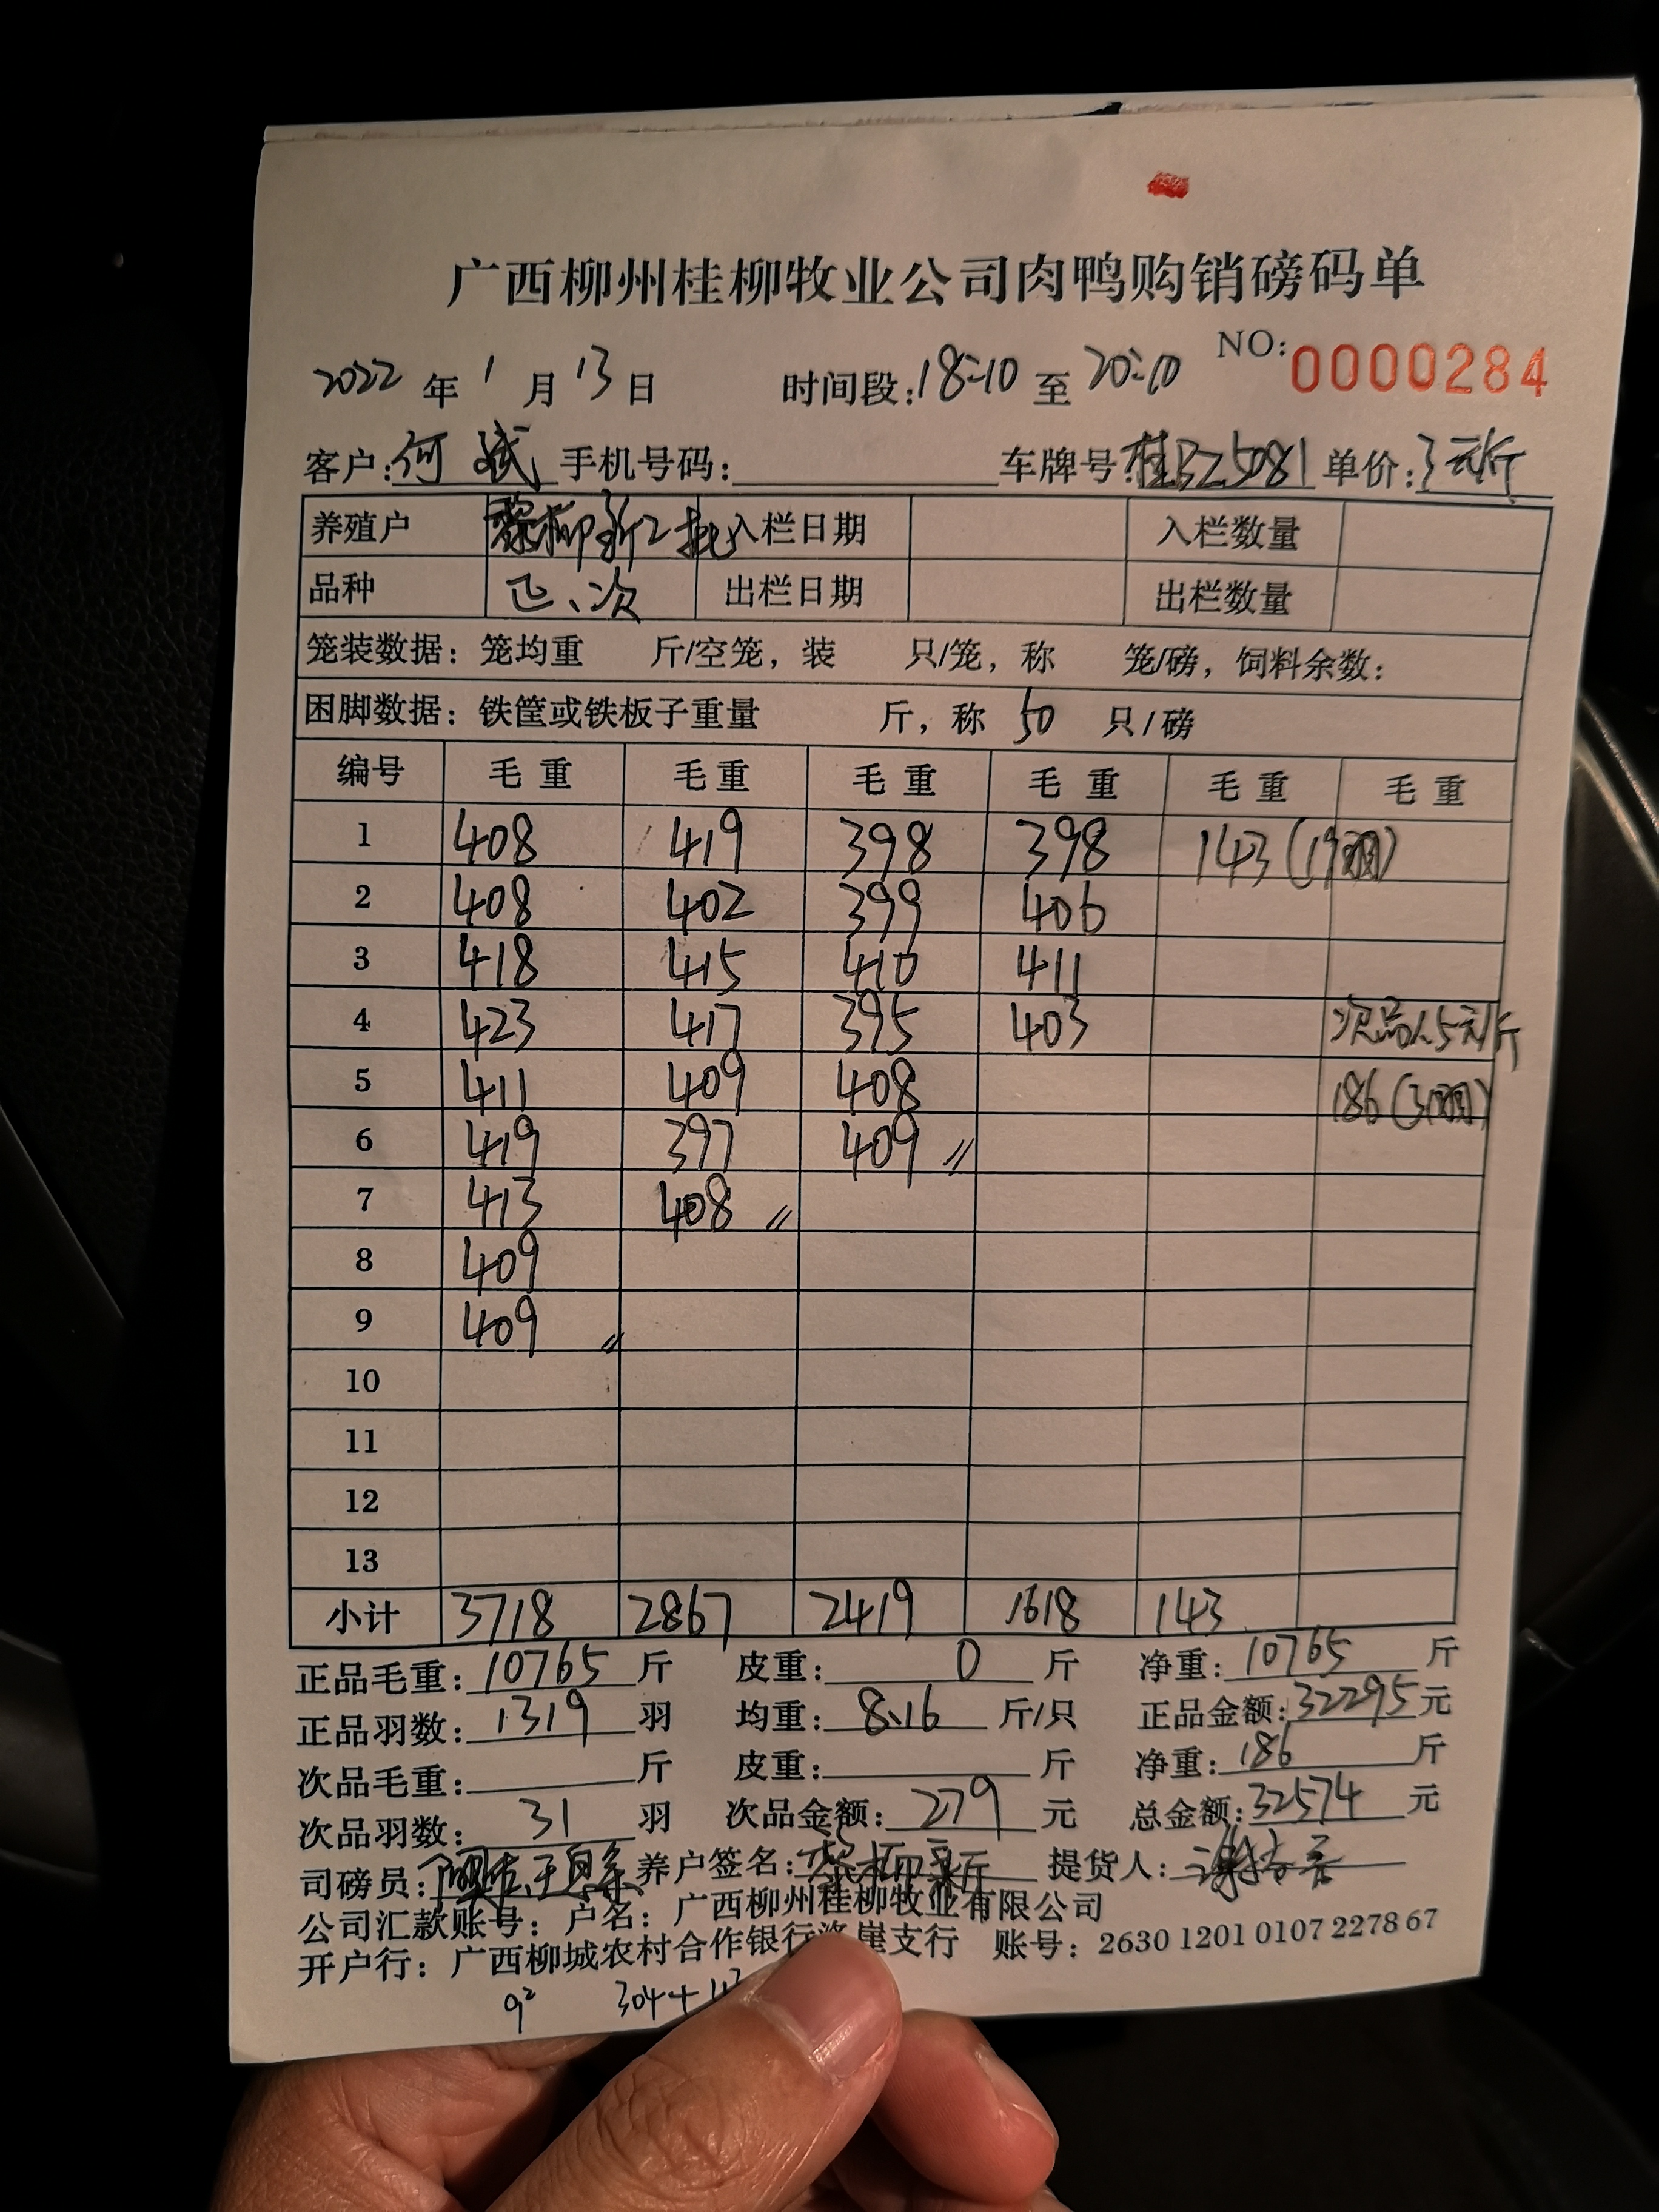 广西柳州桂柳牧业公司肉鸭购销磅码单
NO: 0000284
2022 年 1 月 13 日 时间段:18:10 至 20:10
客户:何斌 手机号码: 车牌号:桂BZ5081 单价:3元/斤
养殖户 黎柳新2批 入栏日期 入栏数量
品种 正、次 出栏日期 出栏数量
笼装数据:笼均重 斤/空笼,装 只/笼,称 笼/磅,饲料余数:
困脚数据:铁筐或铁板子重量 斤,称 50 只/磅
编号 毛重 毛重 毛重 毛重 毛重 毛重
1 408 419 398 398 143(19羽)
2 408 402 399 406
3 418 415 410 411
4 423 417 395 403 次品1.5元/斤
5 411 409 408 186(31羽)
6 419 397 409 //
7 413 408 //
8 409
9 409 //
10
11
12
13
小计 3718 2867 2419 1618 143
正品毛重:10765 斤 皮重:0 斤 净重:10765 斤
正品羽数:1319 羽 均重:8.16 斤/只 正品金额:32295 元
次品毛重: 斤 皮重: 斤 净重:186 斤
次品羽数:31 羽 次品金额:279 元 总金额:32574 元
司磅员: 养户签名:黎柳新 提货人:
公司汇款账号:户名:广西柳州桂柳牧业有限公司
开户行:广西柳城农村合作银行 崖支行 账号:2630 1201 0107 2278 67
9² 304+